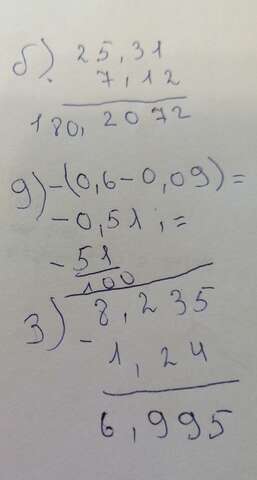 б). 25,31
7,12
180,2072
9) -(0,6-0,09)=
-0,51,=
-51
100
3) 8,235
- 1,24
6,995